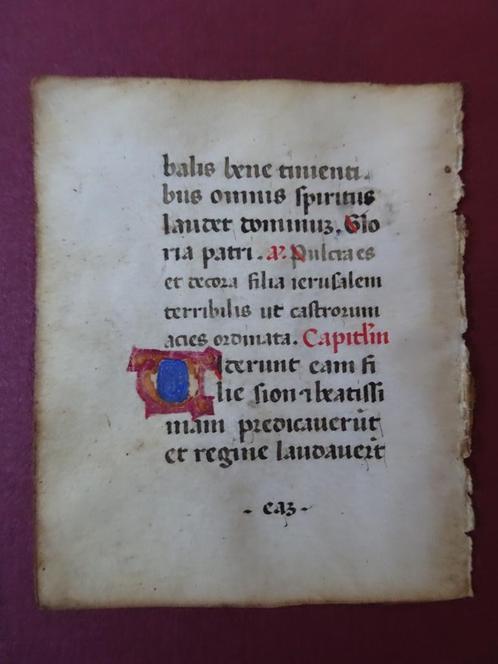 balis bene timenti
bus omnis spiritus
laudet dominuz. Glo
ria patri. an. Pulcra es
et decora filia ierusalem
terribilis ut castrorum
acies ordinata. Capitl'm
Viderunt eam fi
lie sion ⁊ beatissi
mam predicaverūt
et regine laudaverūt
- eaz -